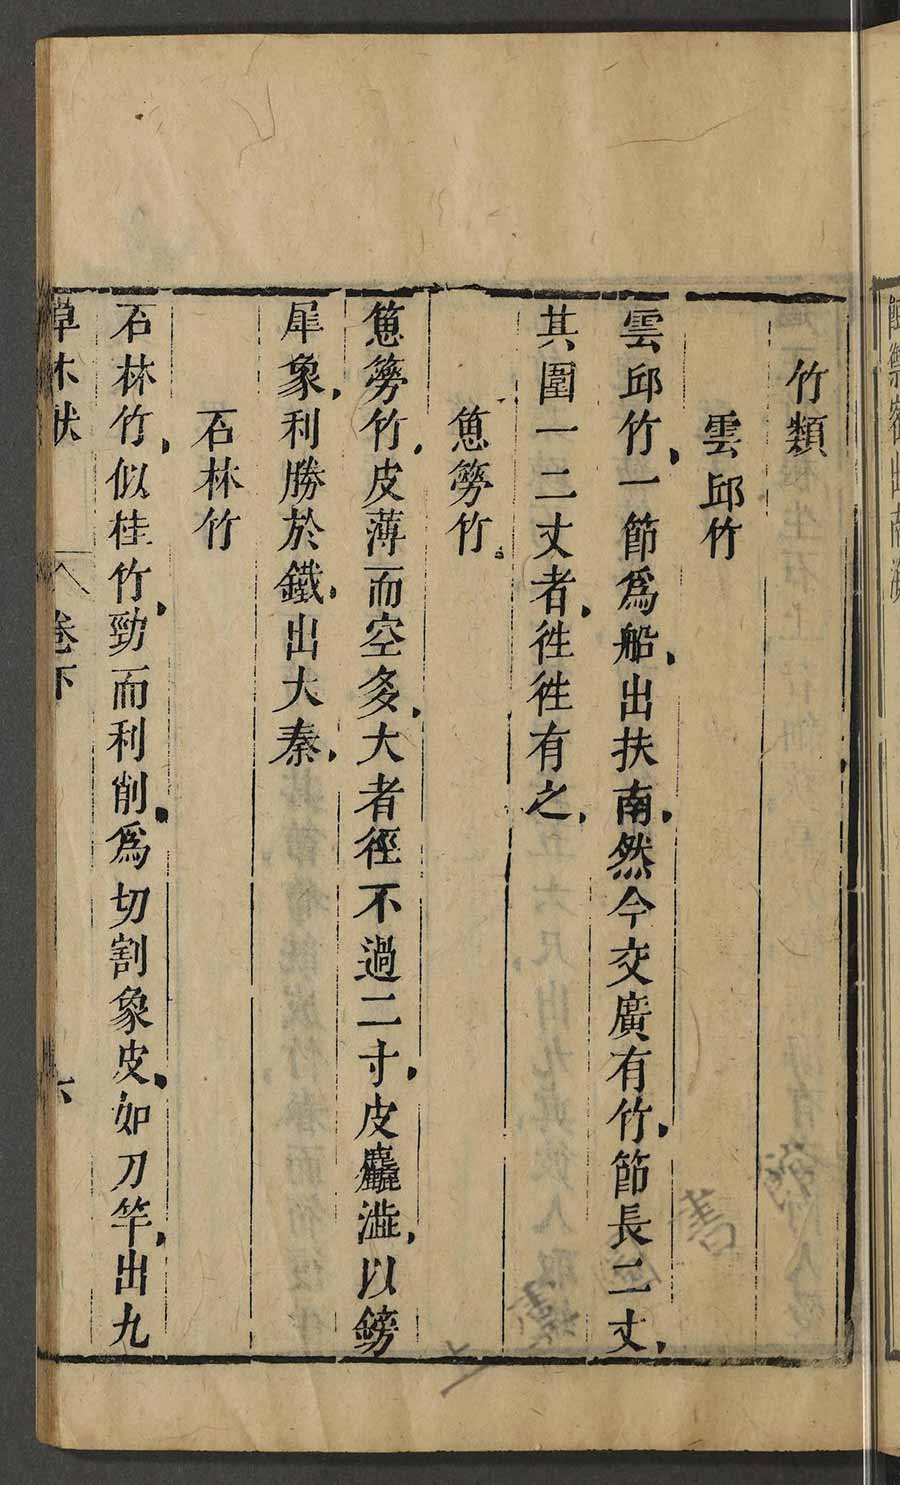 竹類
雲邱竹
雲邱竹一節爲船出扶南然今交廣有竹節長二丈
其圍一二丈者徃徃有之
䔨簩竹
䔨簩竹皮薄而空多大者徑不過二寸皮麤澁以鎊
犀象利勝於鐵出大秦
石林竹
石林竹似桂竹勁而利削爲切割象皮如刀竿出九
草木狀 卷下 六